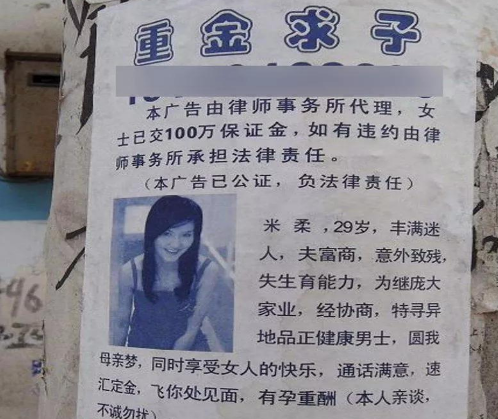 重金求子
本广告由律师事务所代理，女
士已交100万保证金，如有违约由律
师事务所承担法律责任。
（本广告已公证，负法律责任）
米柔，29岁，丰满迷
人，夫富商，意外致残，
失生育能力，为继庞大
家业，经协商，特寻异
地品正健康男士，圆我
母亲梦，同时享受女人的快乐，通话满意，速
汇定金，飞你处见面，有孕重酬（本人亲谈，
不诚勿扰）
46